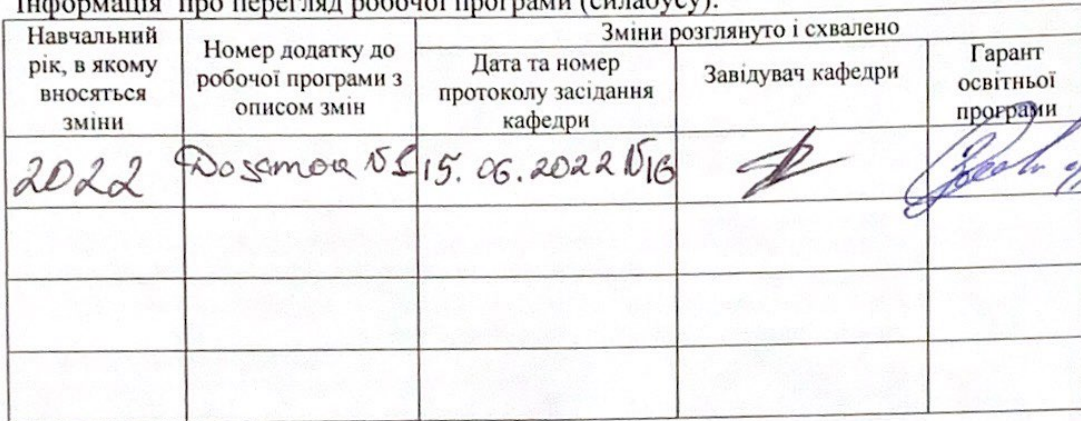 Інформація про перегляд робочої програми (силабусу):
Навчальний рік, в якому вносяться зміни
Номер додатку до робочої програми з описом змін
Зміни розглянуто і схвалено
Дата та номер протоколу засідання кафедри
Завідувач кафедри
Гарант освітньої програми
2022
Додаток №1
15. 06. 2022 №16